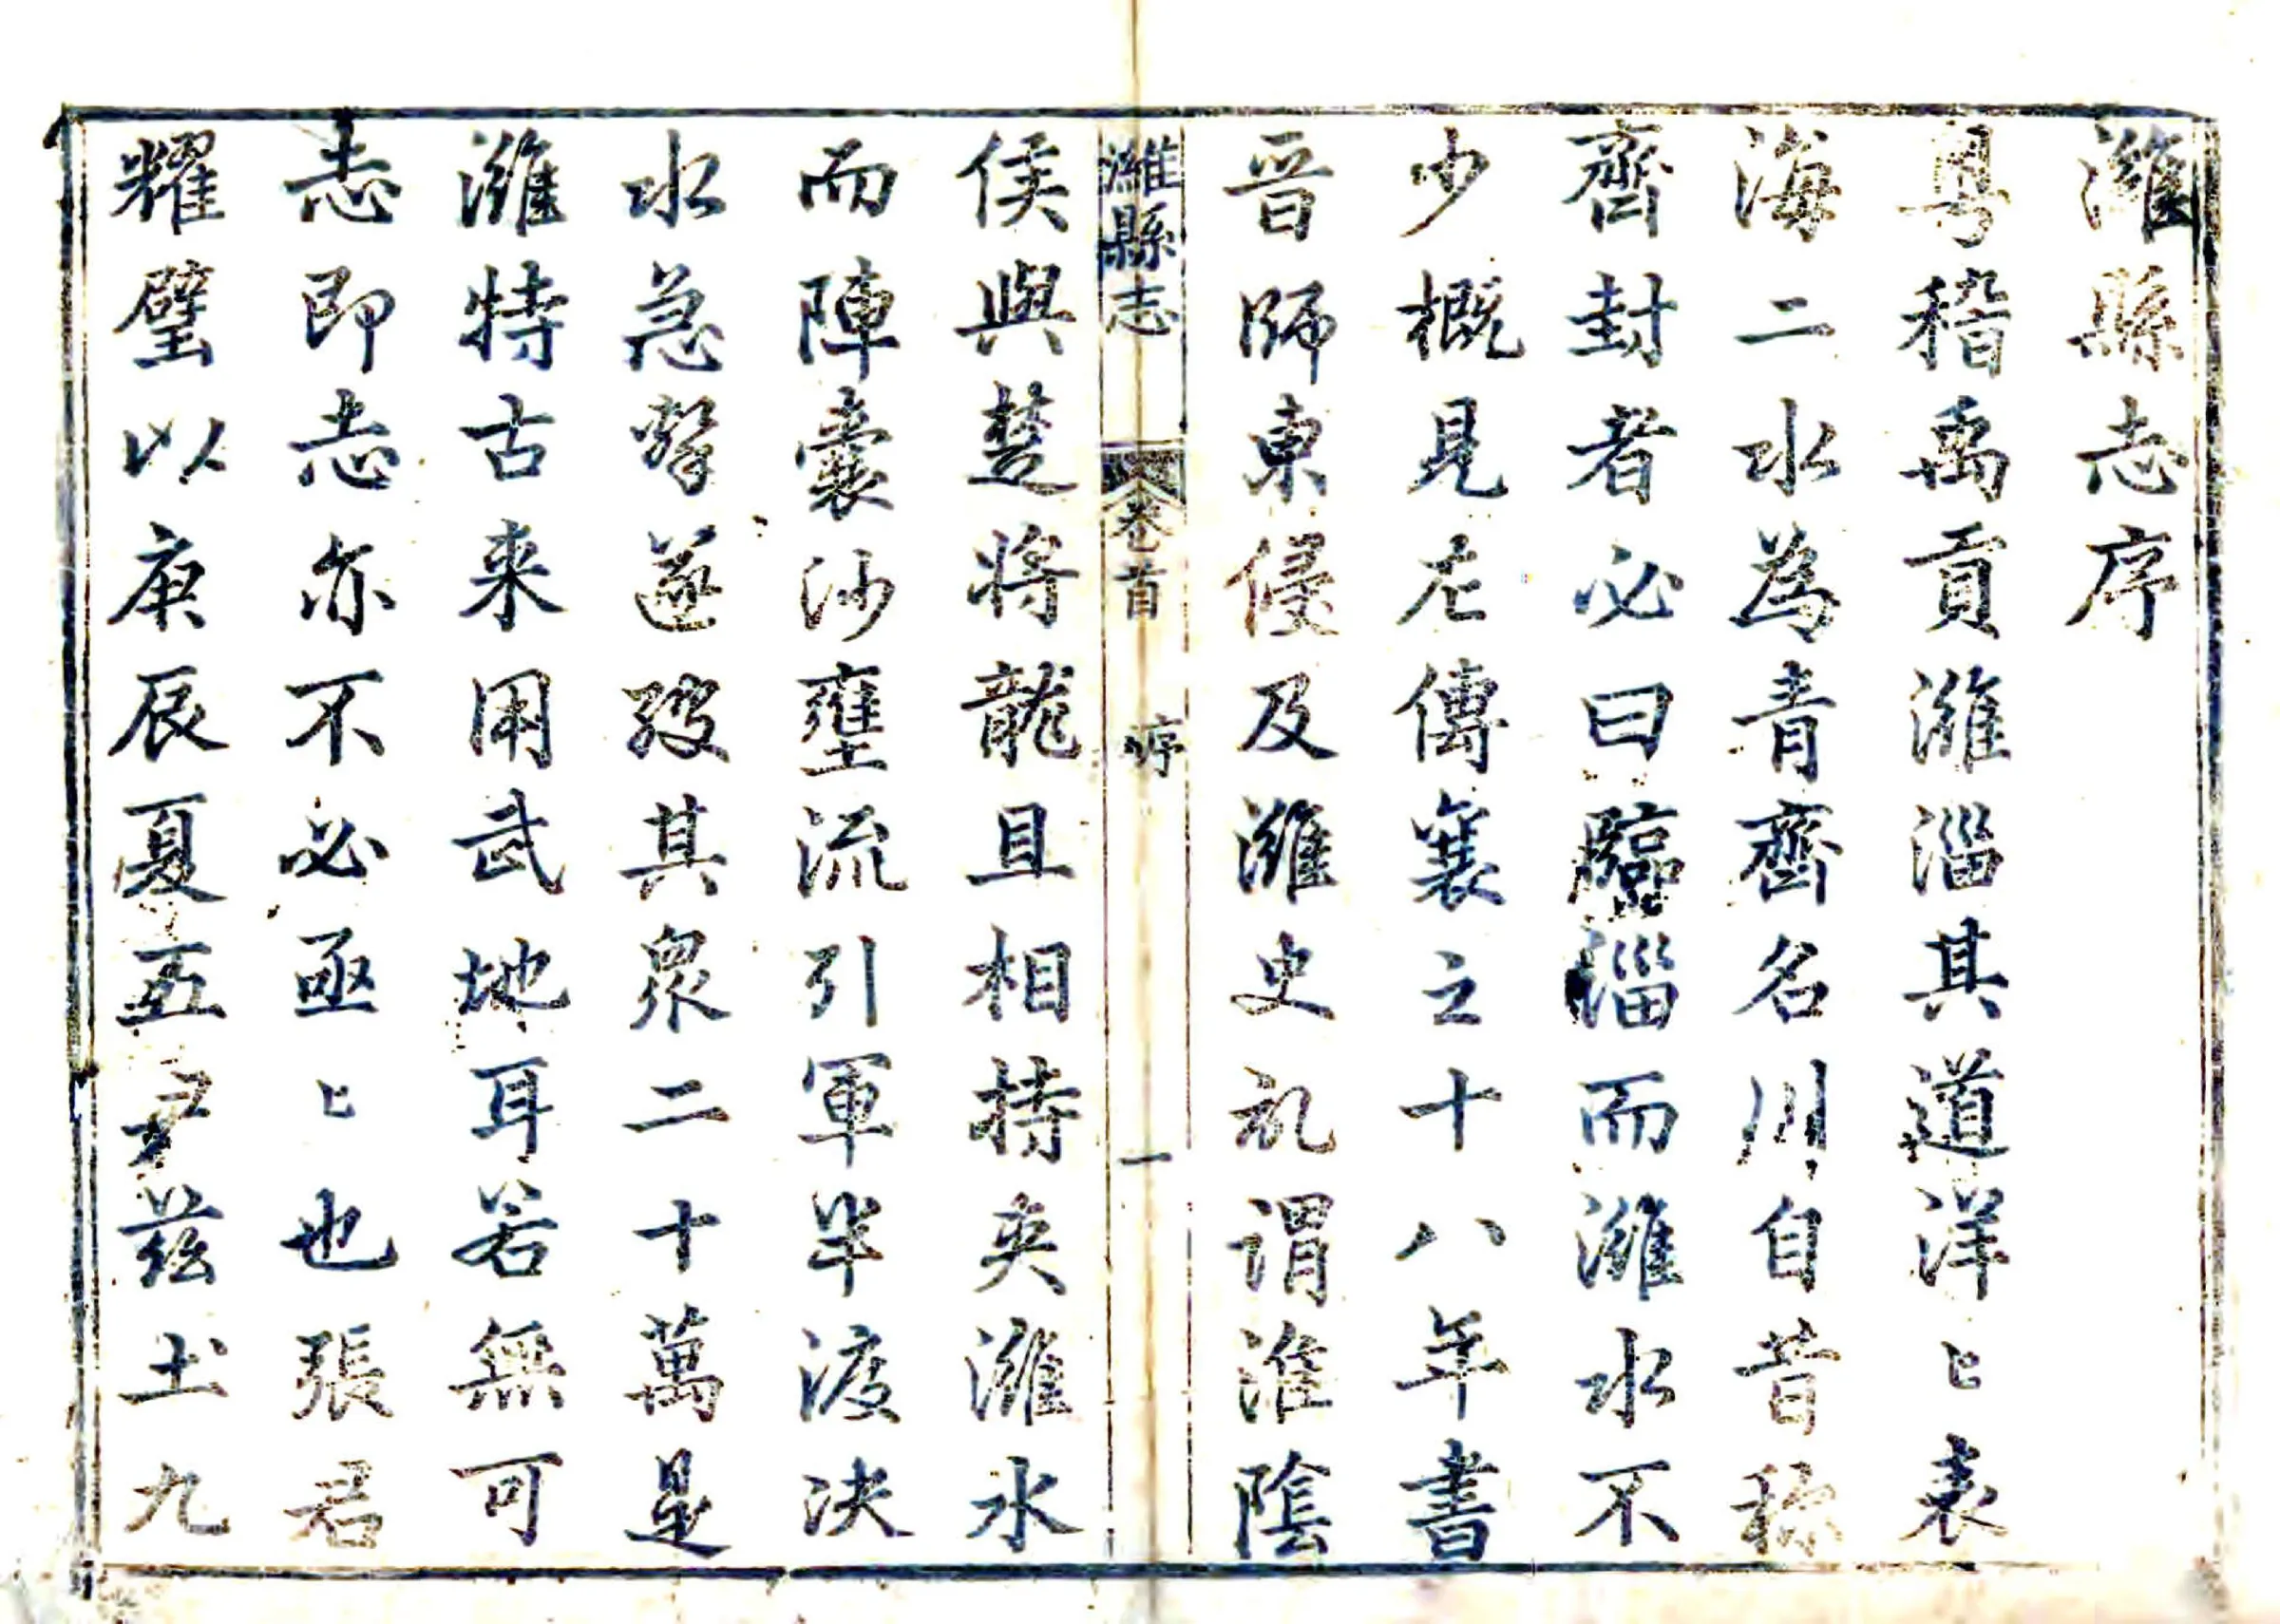 濰縣志序
粤稽禹貢濰淄其道洋〻表
海二水為青齊名川自昔称
齊封者必曰臨淄而濰水不
少概見左傳襄之十八年書
晋師東侵及濰史記謂淮陰
濰縣志 卷首 序 一
侯與楚將龍且相持夾濰水
而陣囊沙壅流引軍半渡决
水急擊遂殺其衆二十萬是
濰特古来用武地耳若無可
志即志亦不必亟〻也張君
耀璧以庚辰夏五尹茲土九